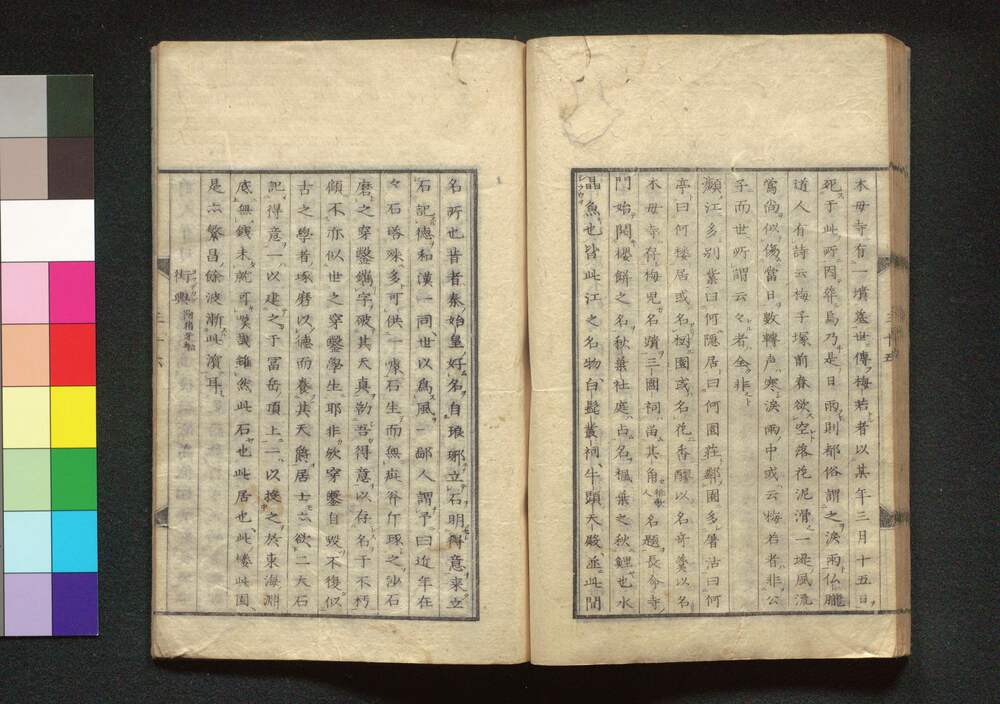 木母寺有一墳墓世傳梅若者以某年三月十五日
死于此所因葬焉乃是日雨則都俗謂之淚雨仏朧
道人有詩云梅子塚前春欲空落花泥滑一堤風流
鶯尚似傷當日數轉声寒淚雨中或云梅若者非公
子而世所謂云々者全非
瀕江多別業曰何隱居曰何園荘鄰園多屠沽曰何
亭曰何樓居或名樹園或名花香醪以名奇羹以名
木母寺存梅児名蹟三圍祠 其角 名題長命寺
門始開櫻餅之名秋葉社庭占名楓葉之秋鯉也水
晶魚也皆此江之名物白髭叢祠牛頭天殿並此間
三十五
名所也昔者秦始皇好名自琅琊立石明得意来立
石記德和漢一同世以為風一鄙人謂予曰近年在
々石碑殊多可供一嘆石生而無疵斧斤琢之沙石
磨之穿鑿鐫字破其天真勒吾得意以存名于不朽
傾不亦似世之穿鑿學生耶非欤穿鑿自毀不復似
古之學者琢磨以德而養其天爵居士亦欲二大石
記得意一以建之于冨岳頂上一以投之於東海淵
底無錢未就可嘆哉雖然此石也此居也此樓此園
是亦繁昌餘波漸此濱耳
街輿
三十六